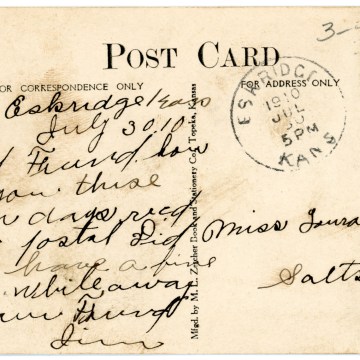 3-
POST CARD
OR CORRESPONDENCE ONLY
FOR ADDRESS ONLY
Eskridge Kans
July 30.10
Friend how
you these
days recd
postal Did
have a fine
while away
Friend
Jim
Mfgd. by M. L. Zercher Book and Stationery Co., Topeka, Kansas
ESKRIDGE
1910
JUL
30
5 PM
KANS
Miss Laura
Salts